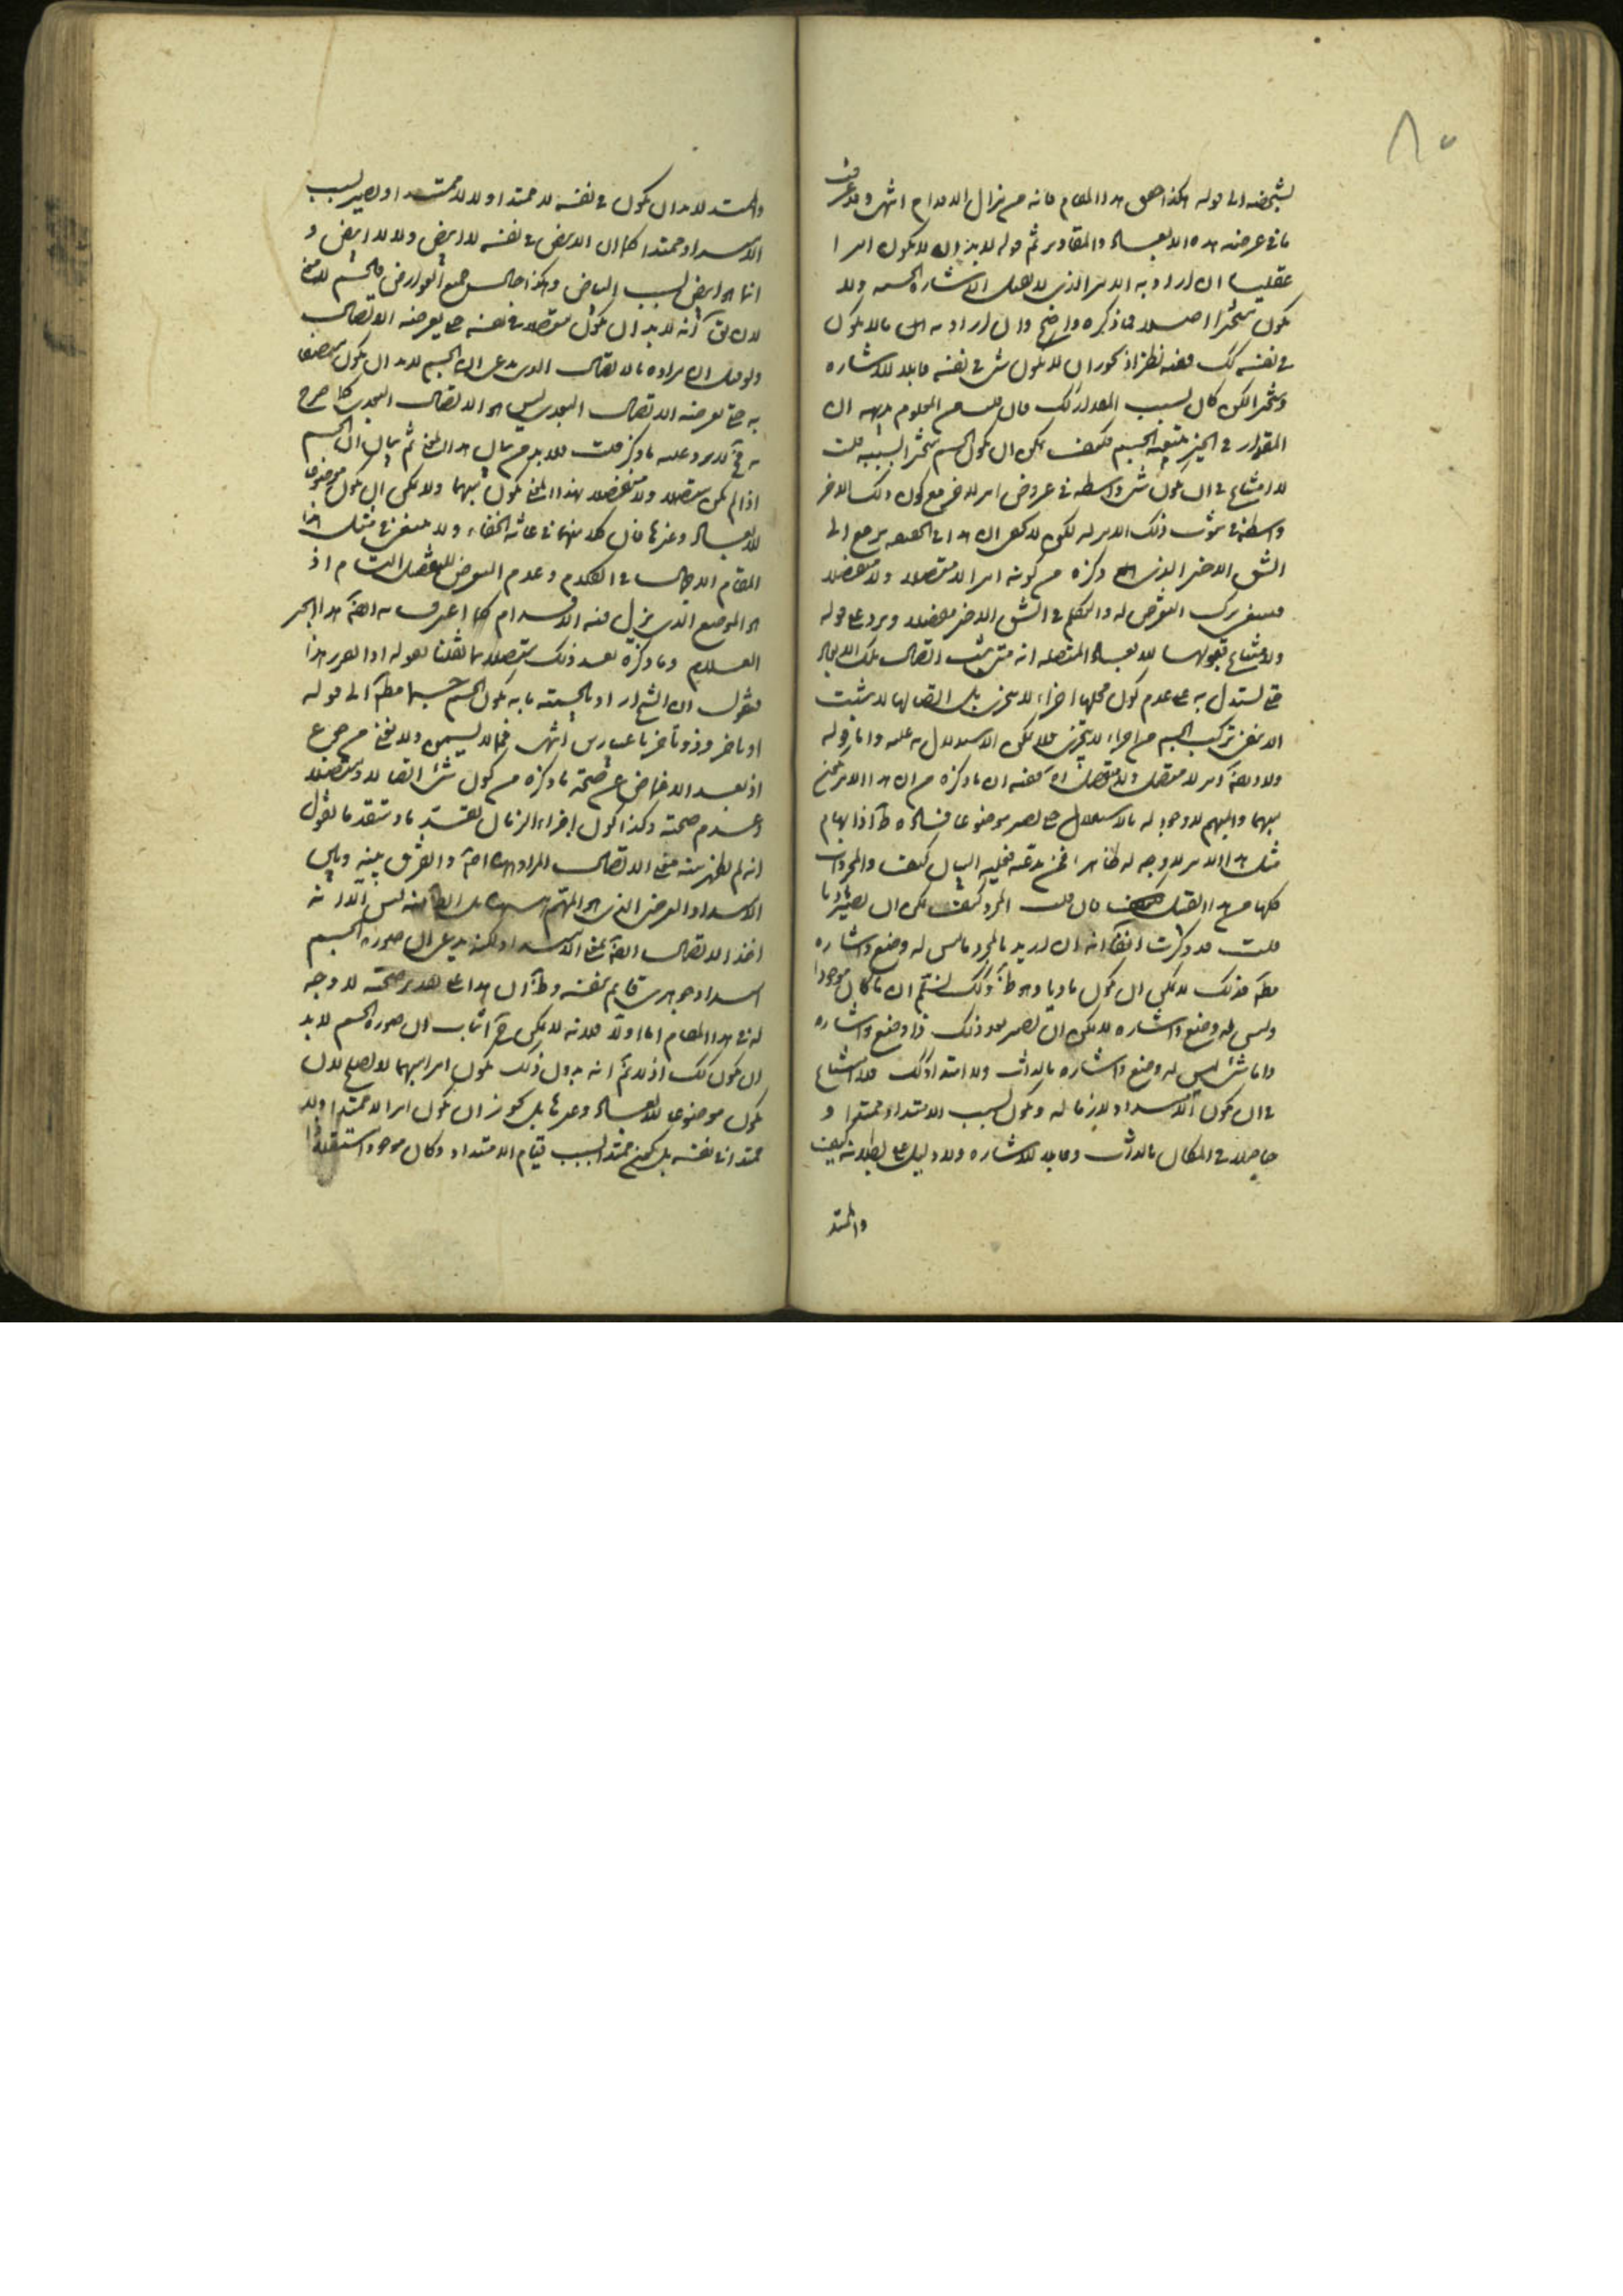 ٨٠
لشخصه الى قوله هكذا حقق هذا المقام فانه من مزال الاقدام انتهى وقد عرفت
ما في عرضه هذه الابعاد والمقادير ثم قوله لا بد ان لا يكون امرا
عقليا ان اراد به الامر الذي لا يقبل الاشارة الحسية ولا
يكون متحيزا اصلا فما ذكره واضح وان اراد به ما لا يكون
في نفسه كك ففيه نظر اذ يجوز ان لا يكون شئ في نفسه قابلا للاشارة
ومتحيزا لكن كان بسبب المقدار كك فان قلت من المعلوم بديهة ان
المقدار في الحيز بتبعية الجسم فكيف يمكن ان يكون الجسم متحيزا بسببه قلت
لا امتناع في ان يكون شئ واسطة في عروض امر لاخر مع كون ذلك الاخر
واسطة في ثبوت ذلك الامر له لكن لا يخفى ان هذا في الحقيقة يرجع الى
الشق الاخير الذي ذكره من كونه امرا لا متصلا ولا منفصلا
فينبغي ترك التعرض له والتكلم في الشق الاخير مفصلا ويرد على قوله
ولامتناع قبولها للابعاد المتصلة انه متى يثبت اتصال تلك الابعاد
حتى يستدل به على عدم كون محلها اجزاء لا يتجزى بل اتصالها لا يثبت
الا بنفي تركب الجسم من اجزاء لا يتجزى فلا يمكن الاستدلال به عليه واما قوله
ولا ايضا امر لا متصل ولا منفصل آه ففيه ان ما ذكره من ان هذا الامر يمتنع
مبهما والمبهم لا وجود له بالاستقلال حتى يصير موضوعا فساده ظ اذ ابهام
مثل هذا الامر لا وجه له ظاهرا فمن يدعيه فعليه البيان كيف والمجردات
كلها من هذا القبيل فان قلت المجرد كيف يمكن ان يصير ماديا
قلت قد ذكرت انفا انه ان اريد بالمجرد ما ليس له وضع واشارة
مط فذلك لا يمكن ان يكون ماديا وهو ظ وكك لنسلم ان ما كان موجودا
وليس له وضع واشارة لا يمكن ان يصير بعد ذلك ذا وضع واشارة
واما شئ ليس له وضع واشارة بالذات ولا امتداد كك فلا امتناع
في ان يكون الامتداد لازما له ويكون بسبب الامتداد ممتدا و
حاصلا في المكان بالذات وقابلا للاشارة ولا دليل على بطلانه كيف
والممتد
والممتد لا بد ان يكون في نفسه لا ممتدا ولا لا ممتدا ويصير بسبب
الامتداد ممتدا كما ان الابيض في نفسه لا ابيض ولا لا ابيض و
انما هو ابيض بسبب البياض وهكذا حال جميع العوارض فالجسم لا معنى
لان يق انه لا بد ان يكون متصلا في نفسه حتى يعرضه الاتصال
ولو قيل ان مراده بالاتصال الذي يدعى ان الجسم لا بد ان يكون متصفا
به حتى يعرضه الاتصال البعدي ليس هو الاتصال البعدي كما صرح
به فح لا يرد عليه ما ذكر قلت فلا بد من بيان هذا المعنى ثم بيان ان الجسم
اذا لم يكن متصلا ولا منفصلا بهذا المعنى يكون مبهما ولا يمكن ان يكون موضوعا
للابعاد وغيرها فان كلا منهما في غاية الخفاء ولا ينبغي في مثل هذا
المقام الاجمال في الكلام وعدم التعرض للتفصيل التام اذ
هو الموضع الذي يزل فيه الاقدام كما اعترف به ايضا هذا الحبر
العلام وما ذكره بعد ذلك متصلا بما نقلنا بقوله اذا تقرر هذا
فنقول ان الشيخ اراد بالجسمية ما به يكون الجسم جسما مط الى قوله
او ما خر وذو تاخر باعتبارين انتهى فمما لا يسمن ولا يغني من جوع
اذ بعد الاغماض عن صحة ما ذكره من كون شئ اتصالا ومتصلا
وعدم صحته وكذا كون اجزاء الزمان تقدما ومتقدما نقول
انه لم يظهر منه معنى الاتصال المراد هاهنا والفرق بينه وبين
الامتداد العرضي الذي هو المهم بل الظاهر منه ليس الا انه
اخذ الاتصال ايضا بمعنى الامتداد لكنه يدعى ان صورة الجسم
امتداد جوهري قايم بنفسه وظ ان هذا على تقدير صحته لا وجه
له في هذا المقام اما اولا فلانه لا يمكن ح اثبات ان صورة الجسم لا بد
ان يكون كك اذ لا يتم انه بدون ذلك يكون امرا مبهما لا يصلح لان
يكون موضوعا للابعاد وغيرها بل يجوز ان يكون امرا لا ممتدا ولا
ممتدا في نفسه بل يكون ممتدا بسبب قيام الامتداد وكان موجودا مستقلا